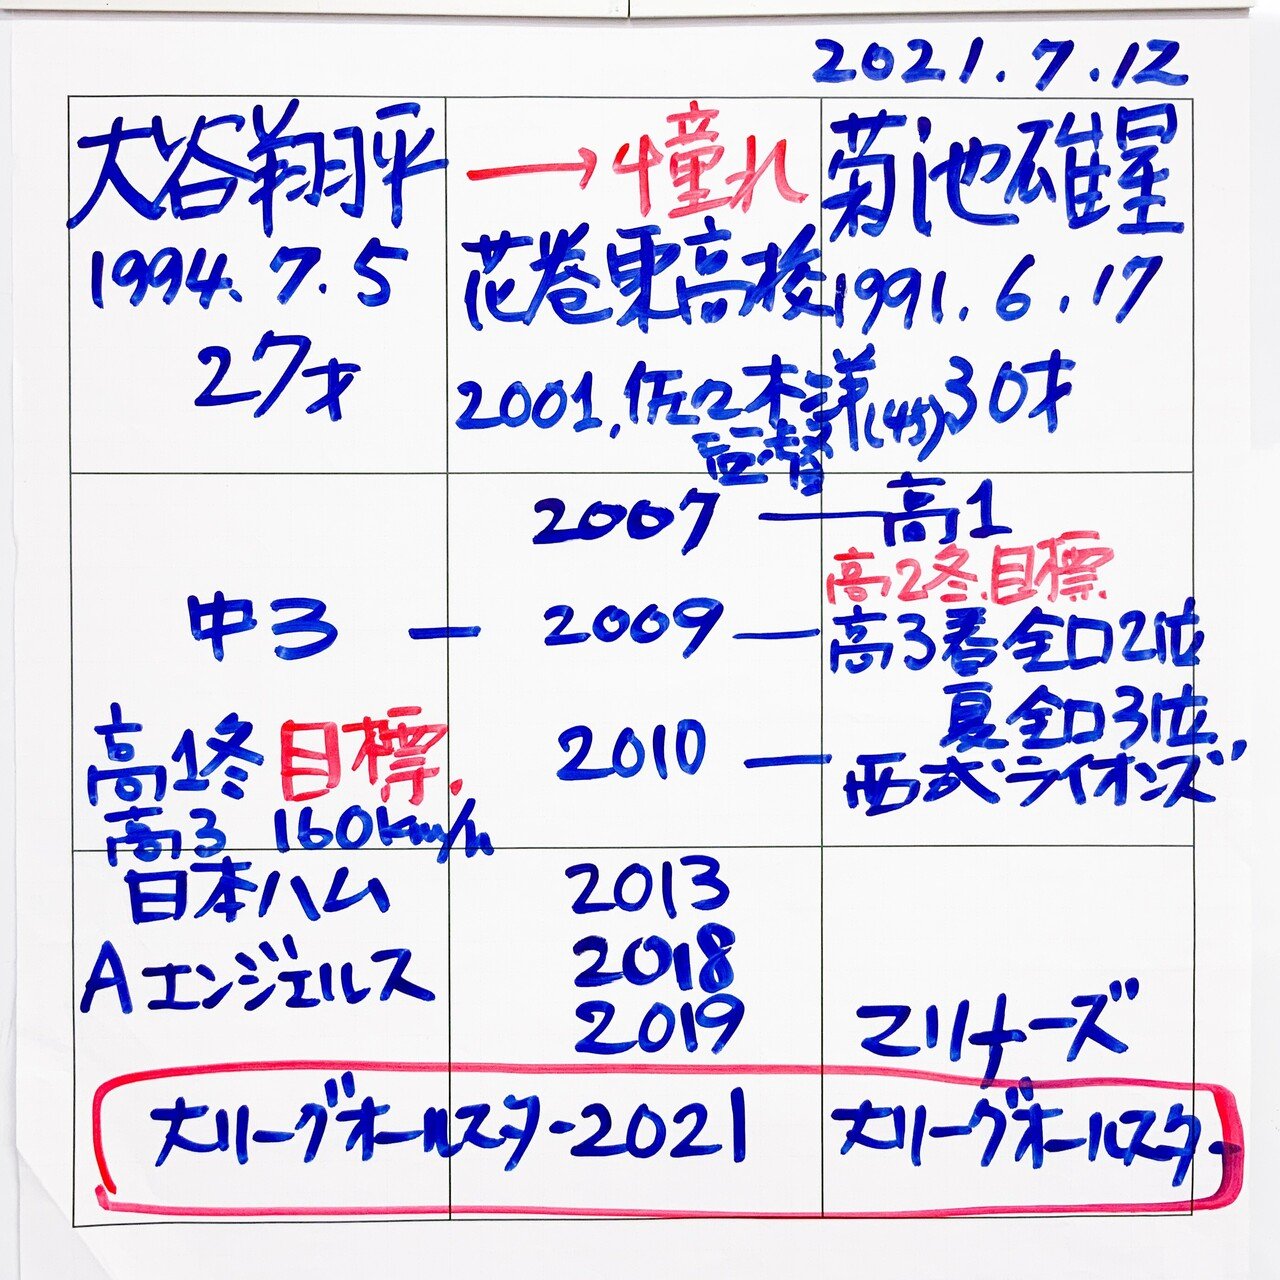 2021.7.12
大谷翔平 → 憧れ 菊池雄星
1994.7.5 花巻東高校 1991.6.17
27才 2001.佐々木洋(45) 30才
監督
2007 — 高1
高2冬.目標
中3 — 2009 — 高3春全口2位
夏全口3位,
高1冬 目標. 2010 — 西武ライオンズ
高3 160km/h
日本ハム 2013
Aエンジェルス 2018
2019 マリナーズ
大リーグオールスター2021 大リーグオールスター